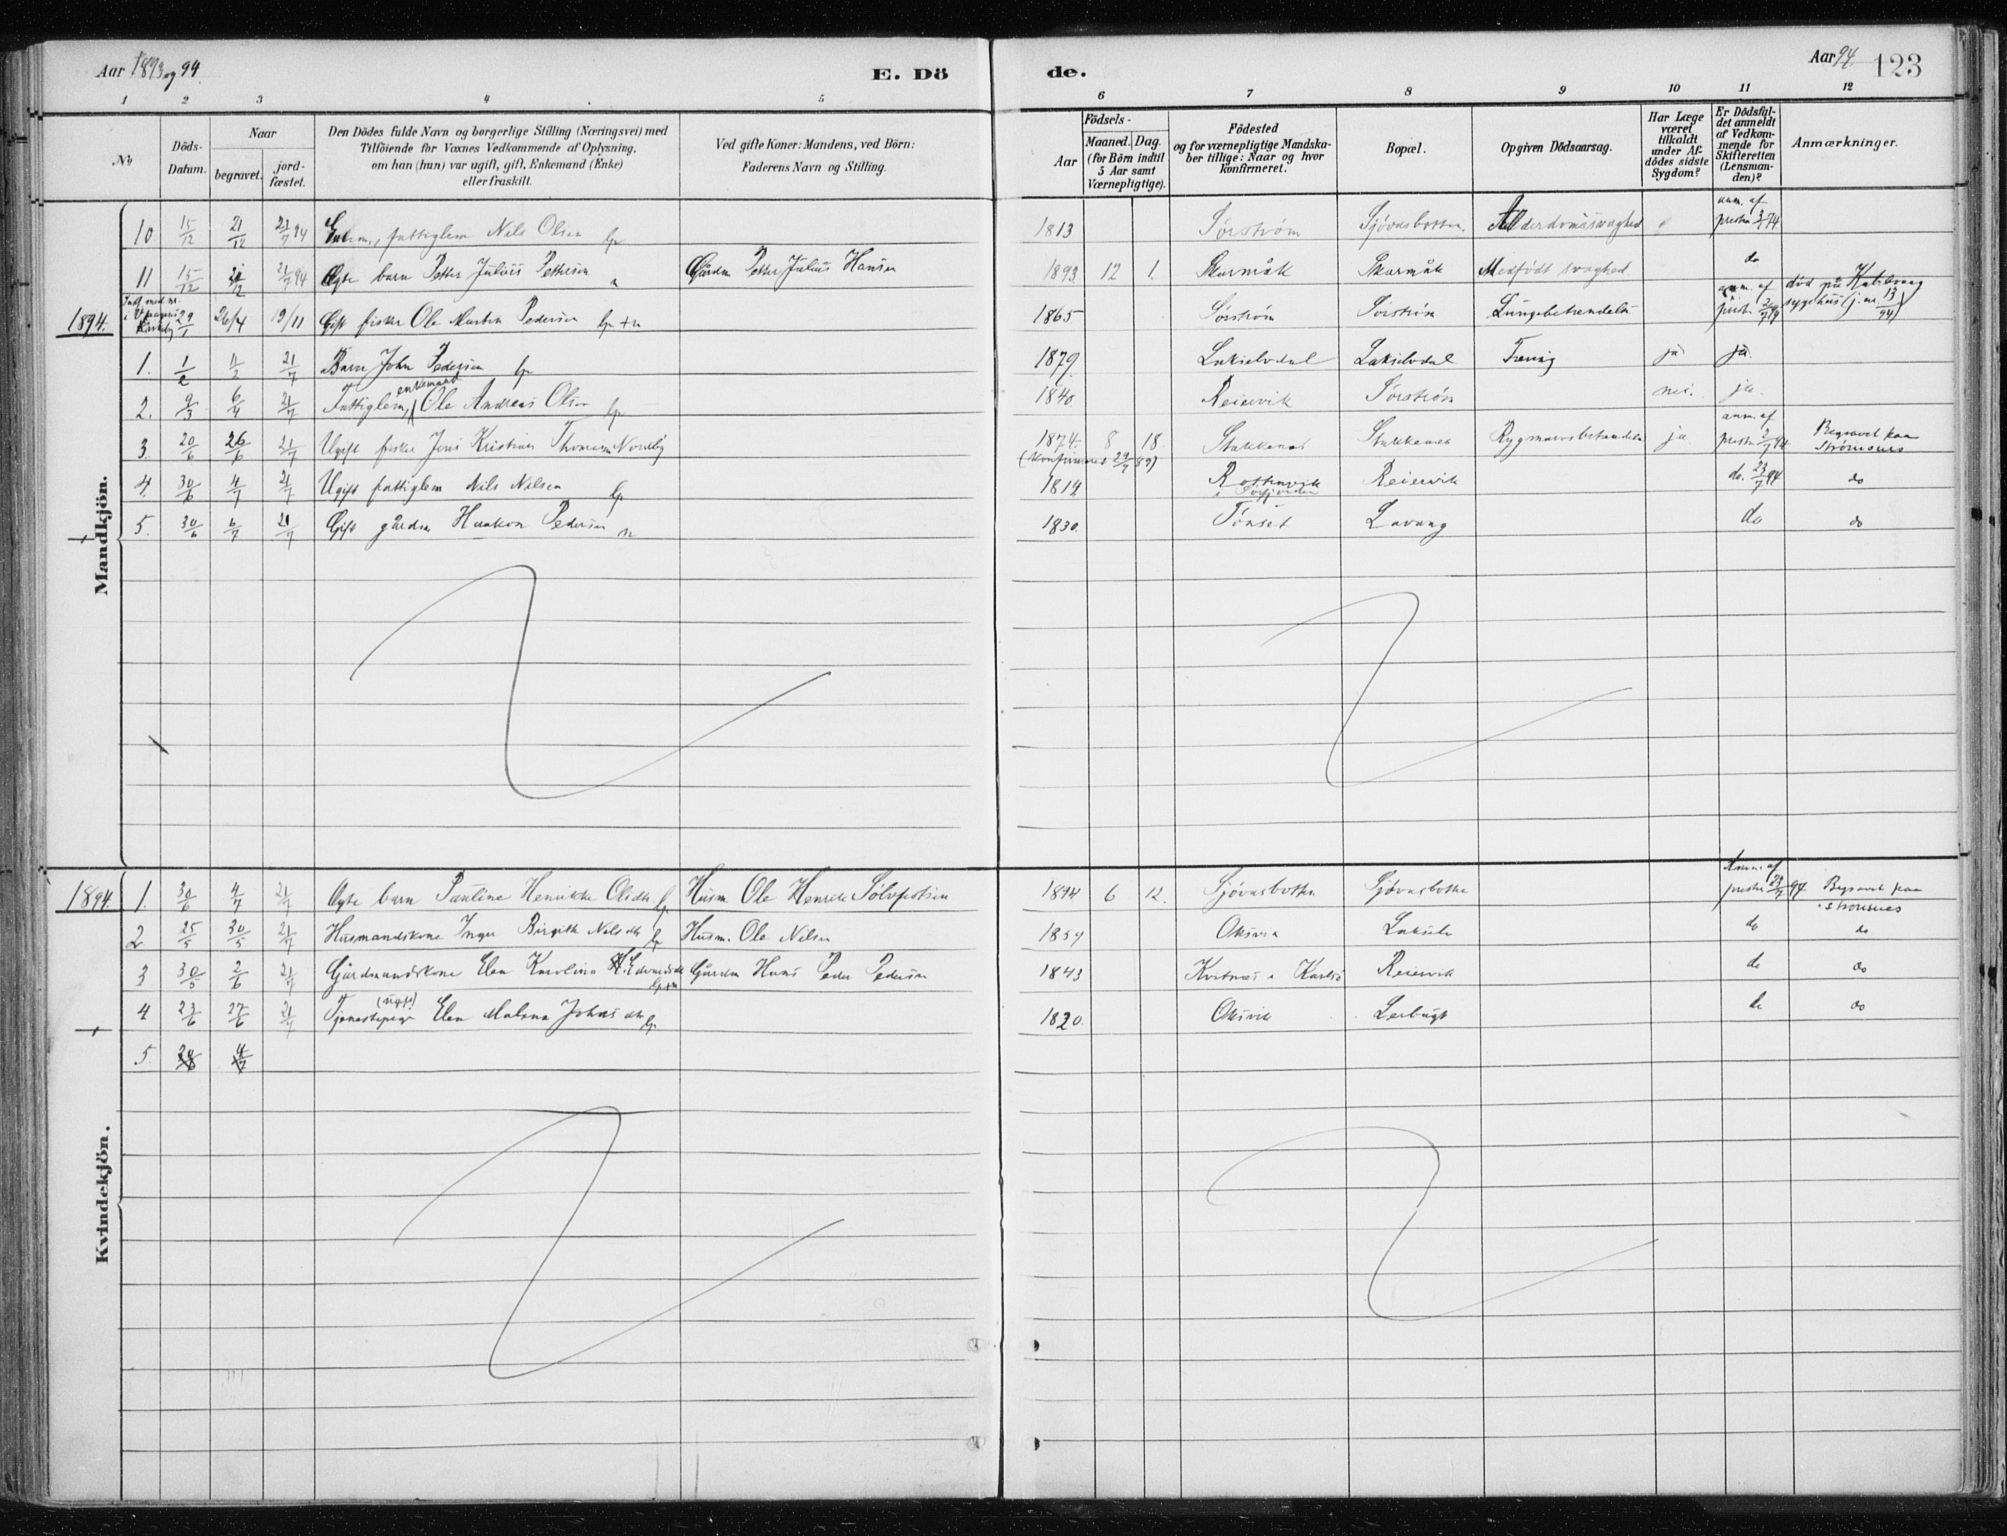 Aar 1893 og 94.
E. Dö
de.
Aar 94.
123
1 2 3 4 5 6 7 8 9 10 11 12
No
Döds-Datum.
Naar
begravet.
jord-fæstet.
Den Dödes fulde Navn og borgerlige Stilling (Næringsvei) med
Tilföiende for Voxnes Vedkommende af Oplysning,
om han (hun) var ugift, gift, Enkemand (Enke)
eller fraskilt.
Ved gifte Koner: Mandens, ved Börn:
Faderens Navn og Stilling.
Födsels-
Aar
Maaned. Dag.
(for Börn indtil
5 Aar samt
Værnepligtige).
Födested
og for værnepligtige Mandska-
ber tillige: Naar og hvor
konfirmeret.
Bopæl.
Opgiven Dödsaarsag.
Har Læge
været
tilkaldt
under Af-
dödes sidste
Sygdom?
Er Dödsfal-
det anmeldt
af Vedkom-
mende for
Skifteretten
(Lensman-
den)?
Anmærkninger.
Mandkjön.
10 15/12 21/12 21/7 94 fattiglem Nils Olsen lp 1813 Sørstrøm Sjövasbotten. Alderdomssvaghed anm. af presten 3/7 94
11 15/12 21/12 21/7 94 Ægte barn Petter Julius Pettersen n Gårdm Petter Julius Hansen 1893 12 1. Skarmåk Skarmåk Medfødt svaghed do
1894. 29/1 26/4 19/11 Gift fisker Ole Morten Pedersen lp+n 1865 Sörströn Sörströn Lungebetændelse anm. af presten død på Kabelvaag sygehus (j. nr 13/94)
1. 1/2 11/2 21/7 Barn John Pedersen lp 1879. Lakselvdal Lakselvdal Tæring ja ja.
2. 9/3 6/4 21/7 Fattiglem, enkemand Ole Andreas Olsen lp 1840. Reiervik Sörströn nei. ja.
3. 20/6 26/6 21/7 Ugift fisker Jens Kristian Thomassen Nordby 1874. 8 18. (konfirmeret 29/9 89) Stakkenes Stakkenes Rygmarvsbetændelse ja anm. af presten 2/7 94 Begravet paa Strømsnes
4. 30/6 4/7 21/7 Ugift fattiglem Nils Nilsen lp 1814 Rottenvik i Sørfjorden Reiervik do. 23/7 94 do
5. 30/6 6/7 21/7 Gift gårdm Haakon Pedersen n 1830. Tönset Lavang do do
Kvindekjön.
1894. 1. 30/6 4/7 21/7 Ægte barn Pauline Henrikke Olsdtr lp Husm. Ole Henrik Sölvfestsen 1894 6 12. Sjövasbotten Sjövasbotten Anm. af presten 23/7 94 Begravet paa Strømsnes
2 25/5 30/5 21/7 Husmandskone Inger Birgith Nilsdtr lp Husm. Ole Nilsen 1859 Oksvik Lakselv do do
3 30/5 2/6 21/7 Gårdmandskone Elen Karolina Edvardsdtr lp+n Gårdm Hans Peder Pedersen 1843 Kvitnæs i Karlsö Reiervik do do
4 23/6 27/6 21/7 Tjenestepige (ugift) Elen Malena Johnsdtr lp 1820. Oksvik Lerbugt do do
5.